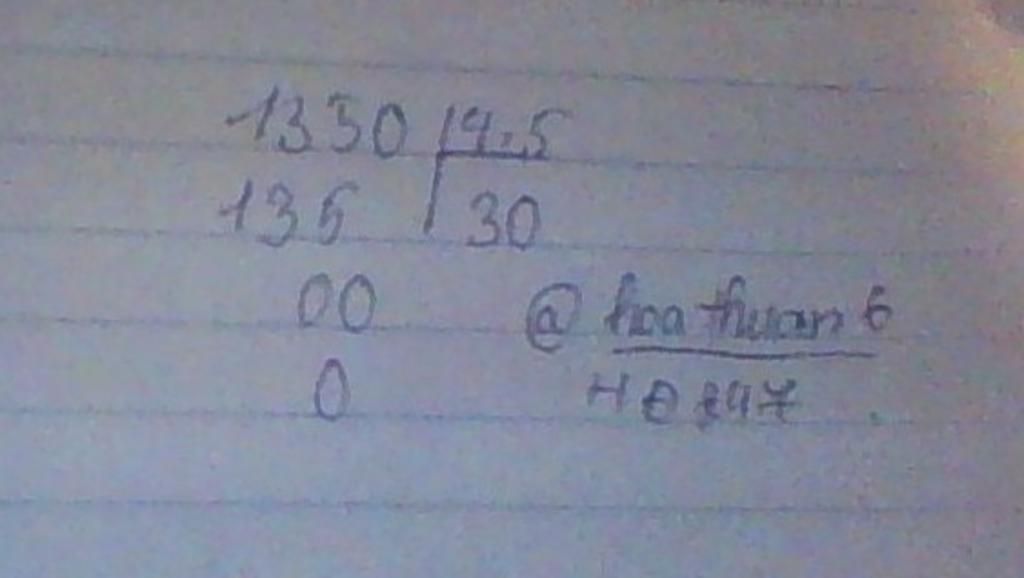 1350 4,5
135 30
00 @ hoa thuan 6
0 HĐ 247